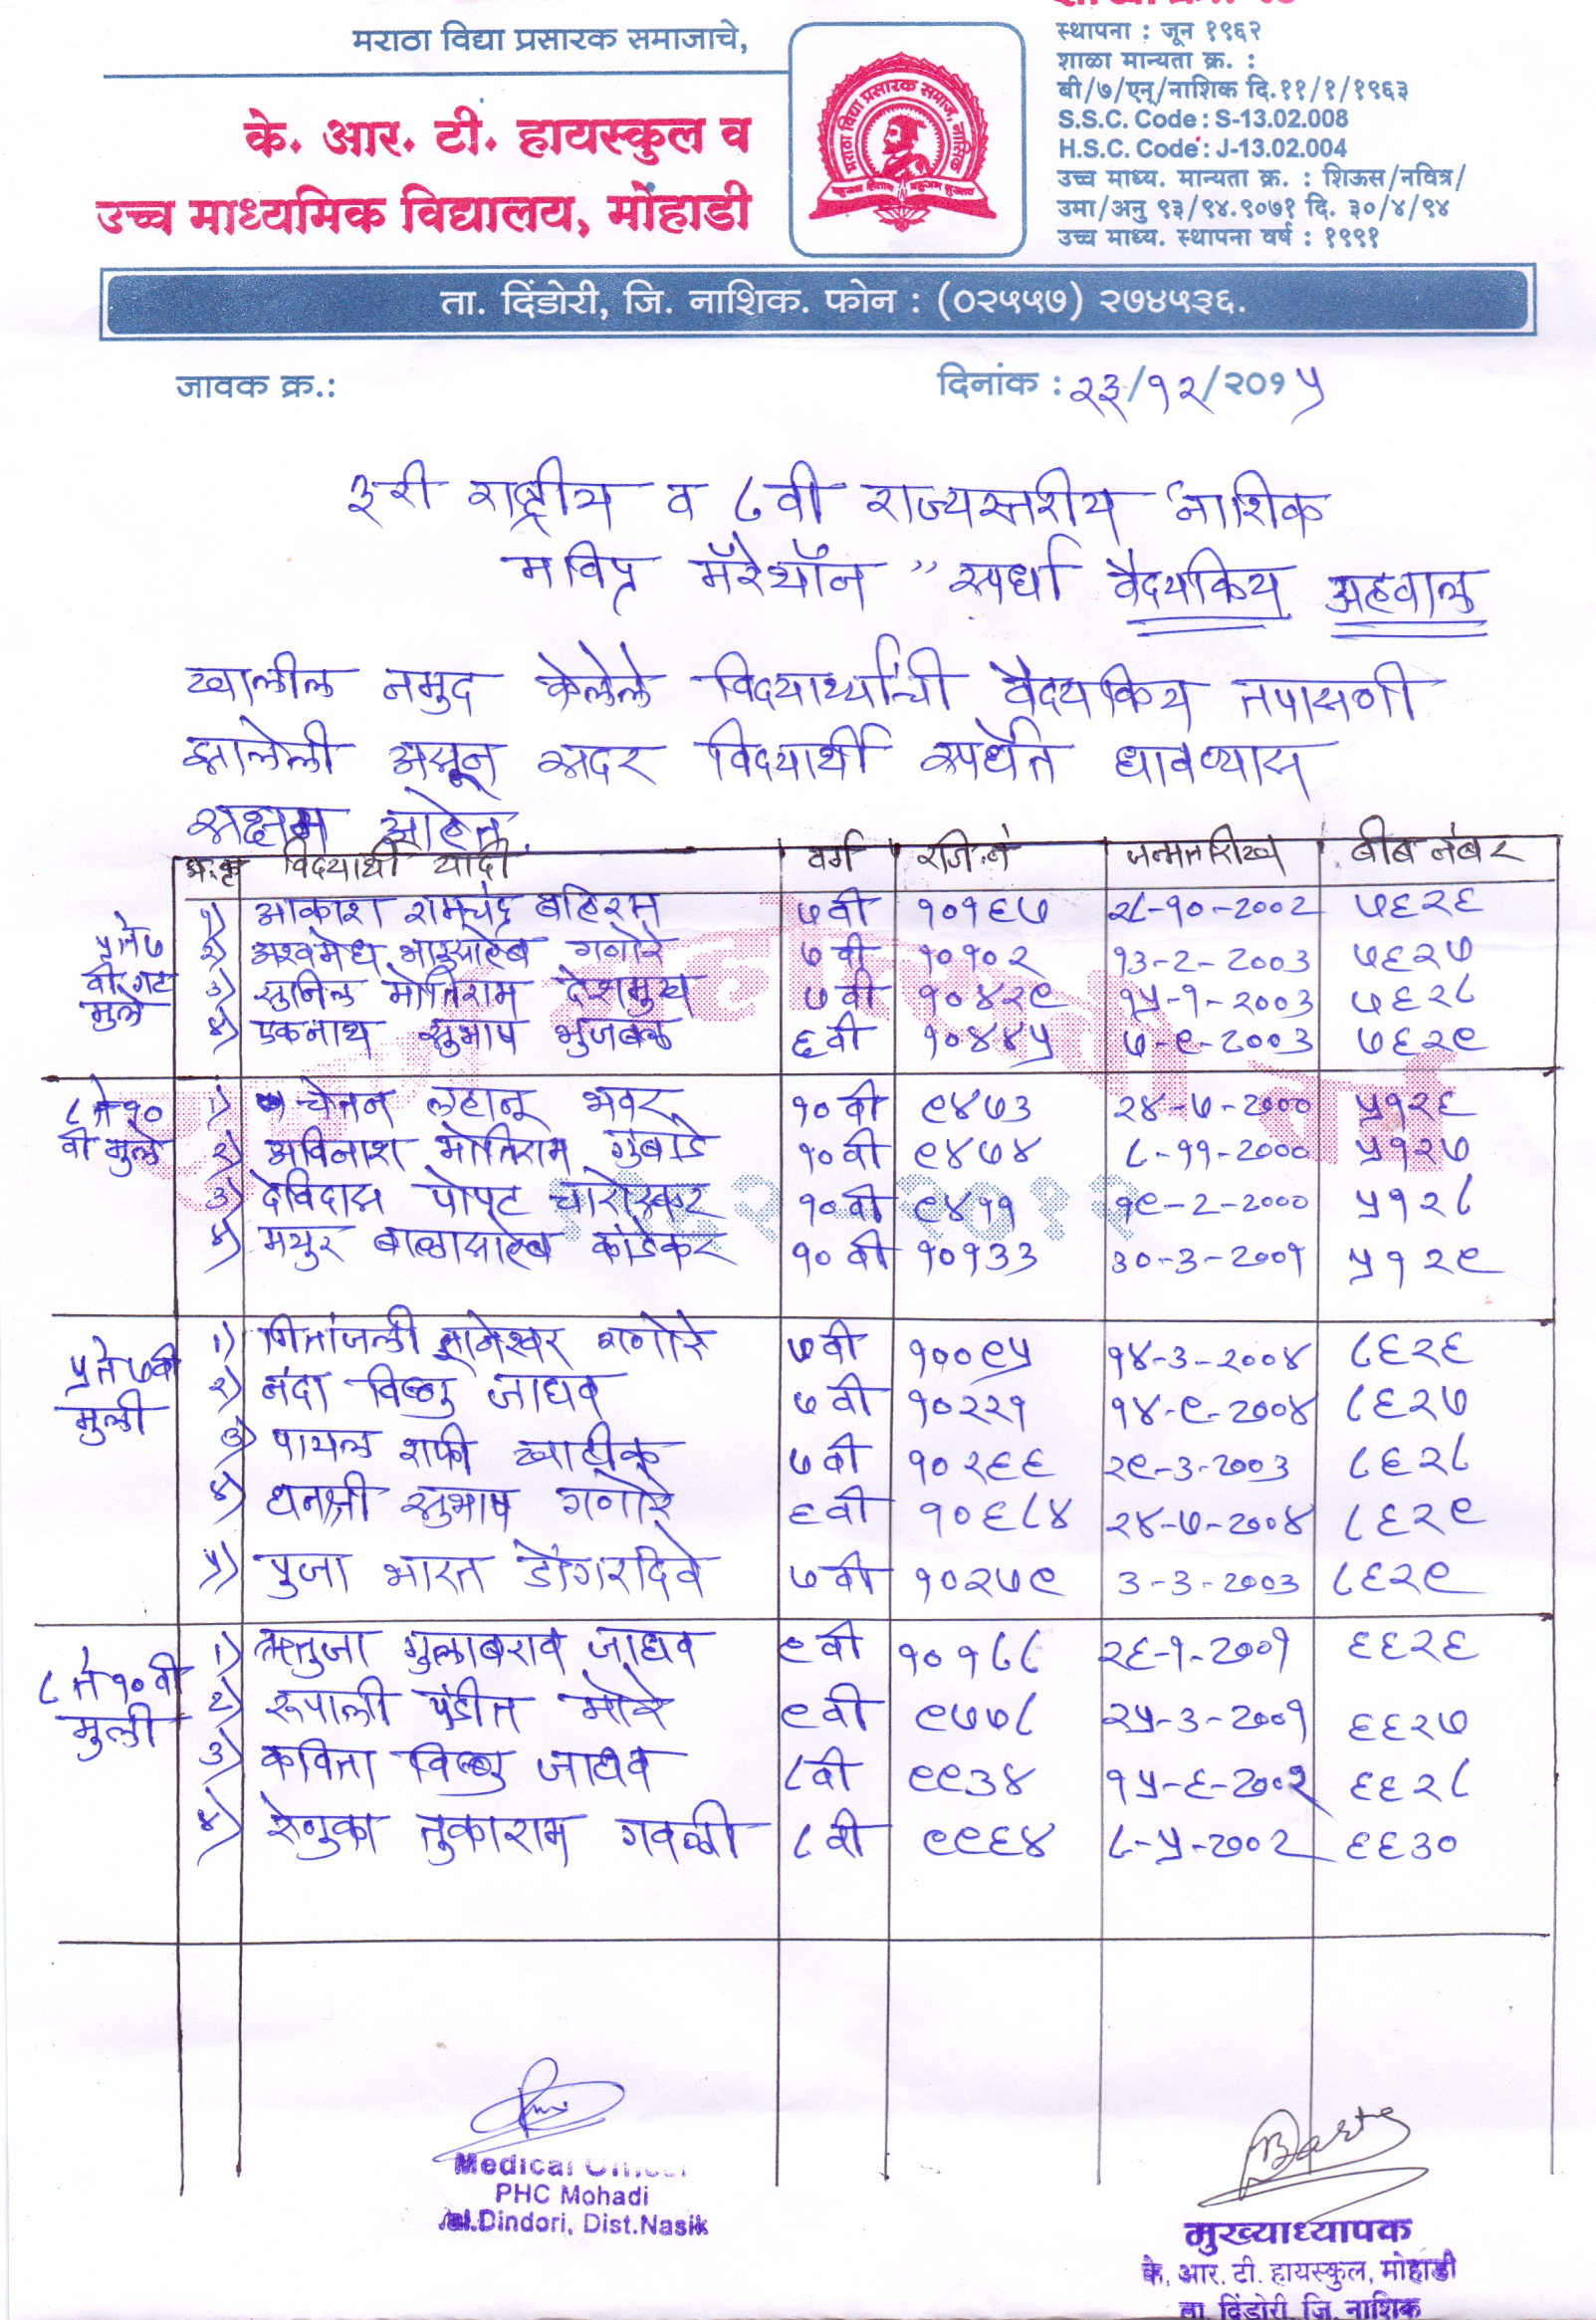 मराठा विद्या प्रसारक समाजाचे,
के. आर. टी. हायस्कुल व
उच्च माध्यमिक विद्यालय, मोहाडी
मराठा विद्या प्रसारक समाज, नाशिक
स्थापना : जून १९६२
शाळा मान्यता क्र. :
बी/७/एन्/नाशिक दि.११/१/१९६३
S.S.C. Code : S-13.02.008
H.S.C. Code : J-13.02.004
उच्च माध्य. मान्यता क्र. : शिऊस/नवित्र/
उमा/अनु ९३/९४.९०७१ दि. ३०/४/९४
उच्च माध्य. स्थापना वर्ष : १९९१
ता. दिंडोरी, जि. नाशिक. फोन : (०२५५७) २७४५३६.
जावक क्र.:
दिनांक : २३/१२/२०१५
३री राष्ट्रीय व ८वी राज्यस्तरीय नाशिक
मविप्र मॅरेथॉन " स्पर्धा वैदयकिय अहवाल
खालील नमुद केलेले विदयार्थ्यांची वैदयकिय तपासणी
झालेली असून सदर विदयार्थी स्पर्धेत धावण्यास
सक्षम आहेत.
अ.कृ विदयार्थी यादी वर्ग रजि.नं जन्मतारीख बीब नंबर
५ ते ७ वी गट मुले
१) आकाश रामचंद्र बहिरम ७वी १०१६७ २८-१०-2002 ७६२६
२) अश्वमेध भाऊसाहेब गणोरे ७ वी १०१०२ १३-2-2003 ७६२७
३) सुनिल मोतिराम देशमुख ७वी १०४२९ १५-१-२००३ ७६२८
४) एकनाथ सुभाष भुजबळ ६वी १०४४५ ७-९-2003 ७६२९
८ ते १० वी मुले
१) चेतन लहानू भवर १०वी ९४७३ २४-७-2000 ५१२६
२) अविनाश मोतिराम गुंबाडे १०वी ९४७४ ८-११-2000 ५१२७
३) देविदास पोपट चारोस्कर १०वी ९४११ १९-2-2000 ५१२८
४) मयुर बाळासाहेब कांडेकर १०वी १०१३३ ३०-३-२००१ ५१२९
५ ते ७वी मुली
१) गितांजली ज्ञानेश्वर गणोरे ७वी १००९५ १४-३-२००४ ८६२६
२) नंदा विष्णु जाधव ७वी १०२२१ १४-९-२००४ ८६२७
३) पायल शफी खाटीक ७वी १०२६६ २९-३-२००३ ८६२८
४) धनश्री सुभाष गणोरे ६वी १०६८४ २४-७-२००४ ८६२९
५) पुजा भारत डोंगरदिवे ७वी १०२७९ ३-३-२००३ ८६२९
८ ते १० वी मुली
१) ऋतुजा गुलाबराव जाधव ९वी १०१८८ २६-१-२००१ ६६२६
२) रूपाली पंडीत मोरे ९वी ९७७८ २५-३-२००१ ६६२७
३) कविता विष्णु जाधव ८वी ९९३४ १५-६-२००२ ६६२८
४) रेणुका तुकाराम गवळी ८वी ९९६४ ८-५-२००२ ६६३०
Medical Officer
PHC Mohadi
Tal.Dindori, Dist.Nasik
मुख्याध्यापक
के. आर. टी. हायस्कुल, मोहाडी
ता. दिंडोरी, जि. नाशिक